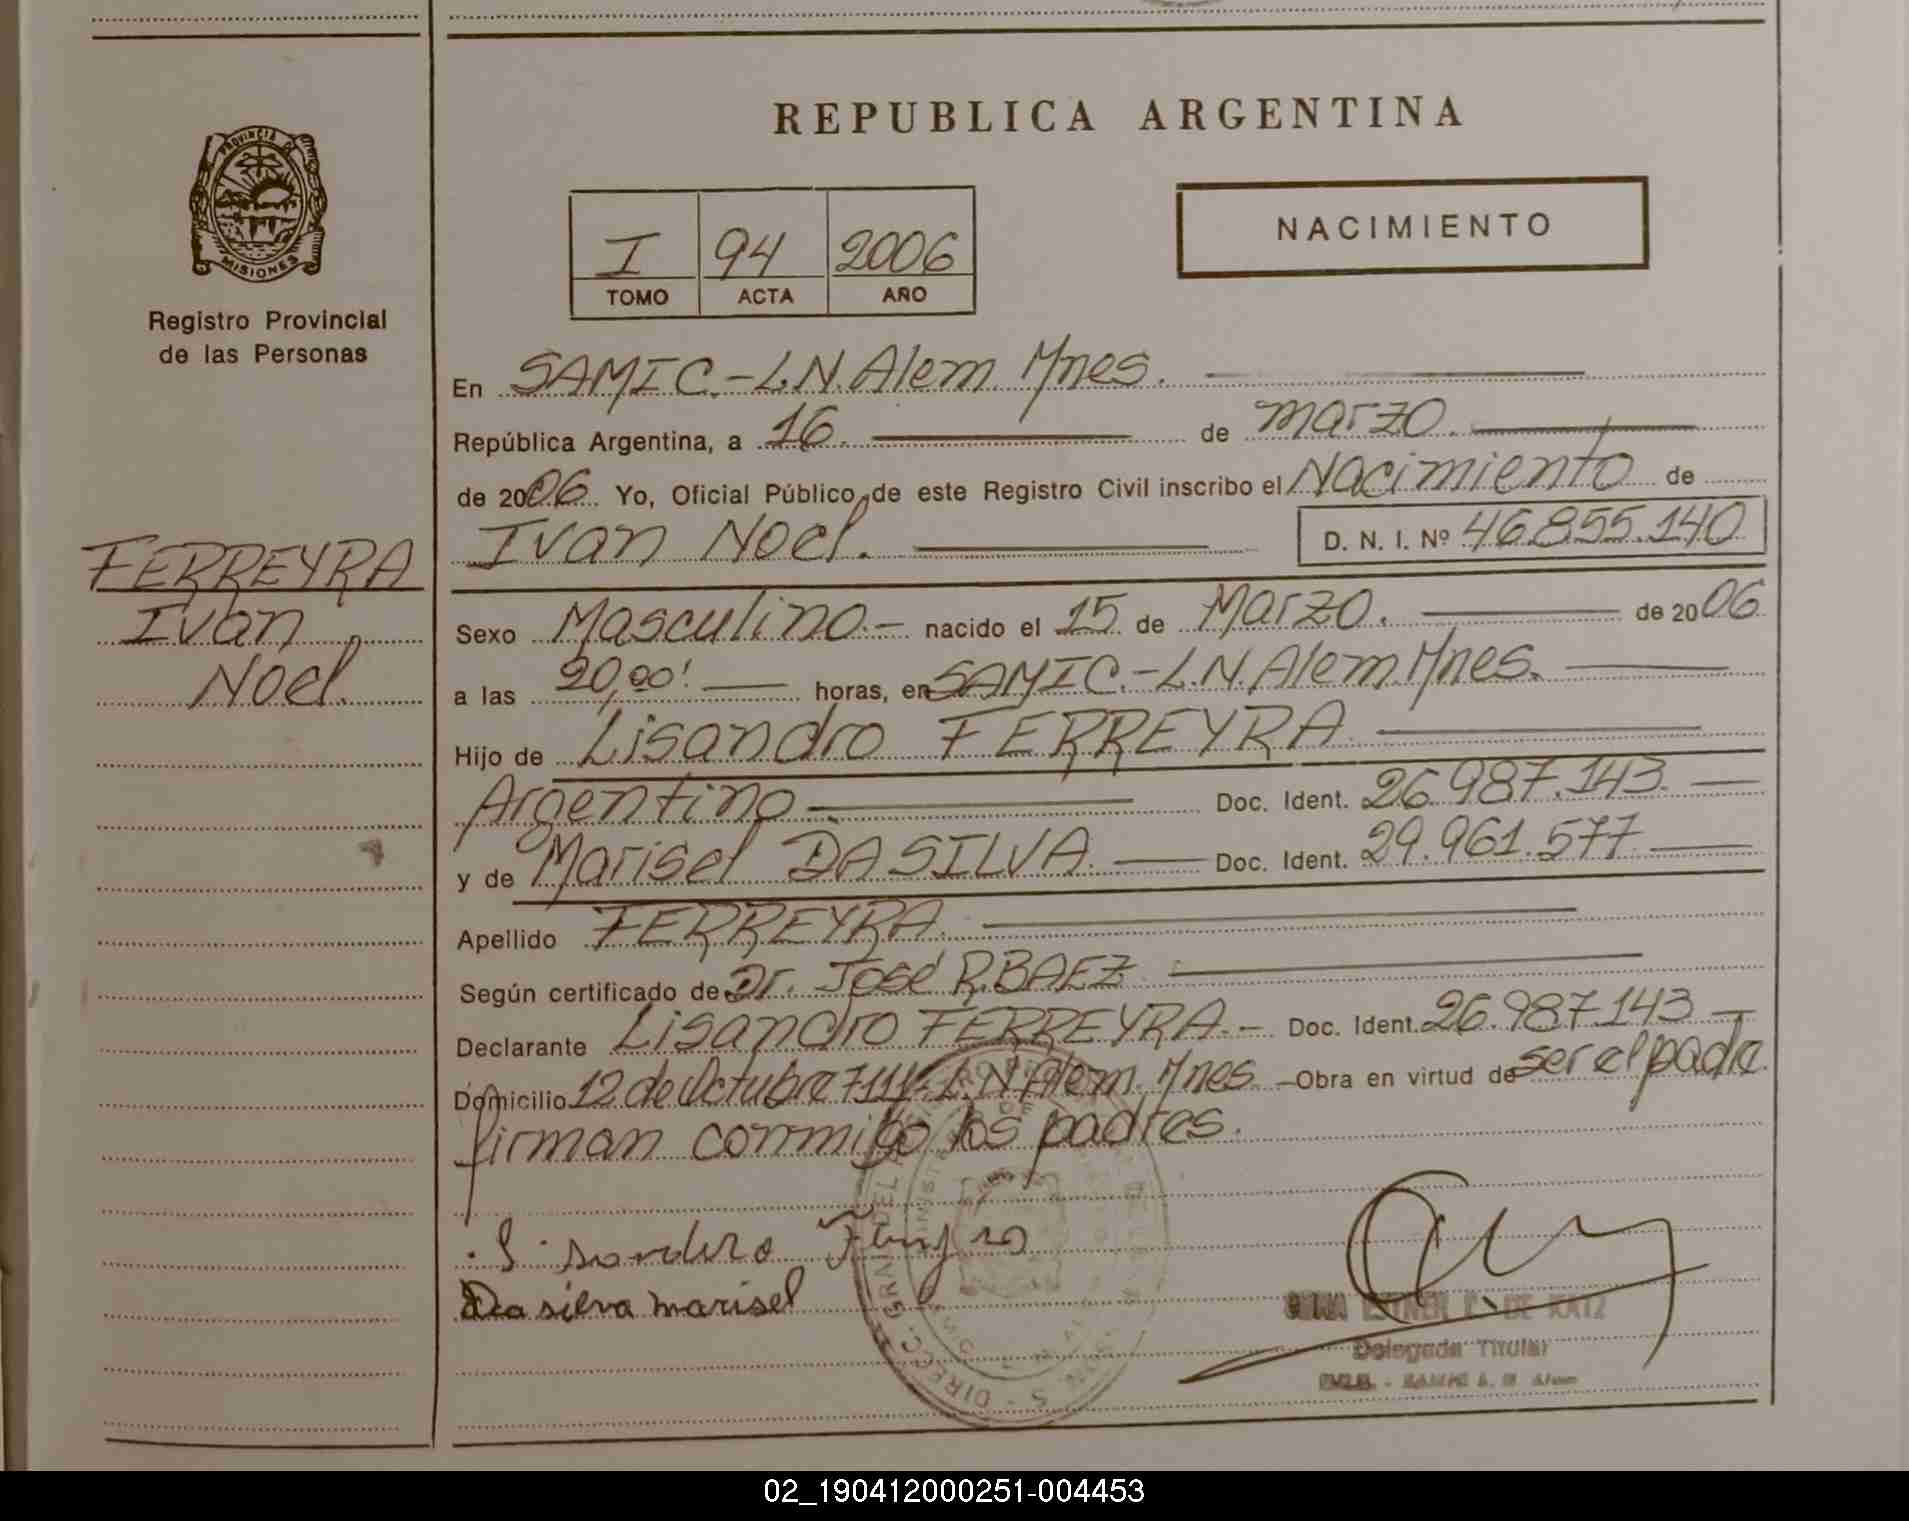 REPUBLICA ARGENTINA
PROVINCIA DE
MISIONES
Registro Provincial
de las Personas
I 94 2006
TOMO ACTA AÑO
NACIMIENTO
En SAMIC.-L.N.Alem. Mnes.
República Argentina, a 16. de marzo.
de 2006. Yo, Oficial Público de este Registro Civil inscribo el Nacimiento de
Ivan Noel. D. N. I. Nº 46.855.140
FERREYRA
Ivan
Noel.
Sexo Masculino.- nacido el 15 de Marzo. de 2006
a las 20,00! horas, en SAMIC.-L.N.Alem.Mnes.
Hijo de Lisandro FERREYRA
Argentino Doc. Ident. 26.987.143.
y de Marisel DA SILVA. Doc. Ident. 29.961.577
Apellido FERREYRA.
Según certificado de Dr. José R.BAEZ
Declarante Lisandro FERREYRA.- Doc. Ident. 26.987.143
Domicilio 12 de Octubre L.N.Alem. Mnes. Obra en virtud de ser el padre.
firman conmigo los padres.
Da silva marisel
DE KATZ
Delegada Titular
02_190412000251-004453